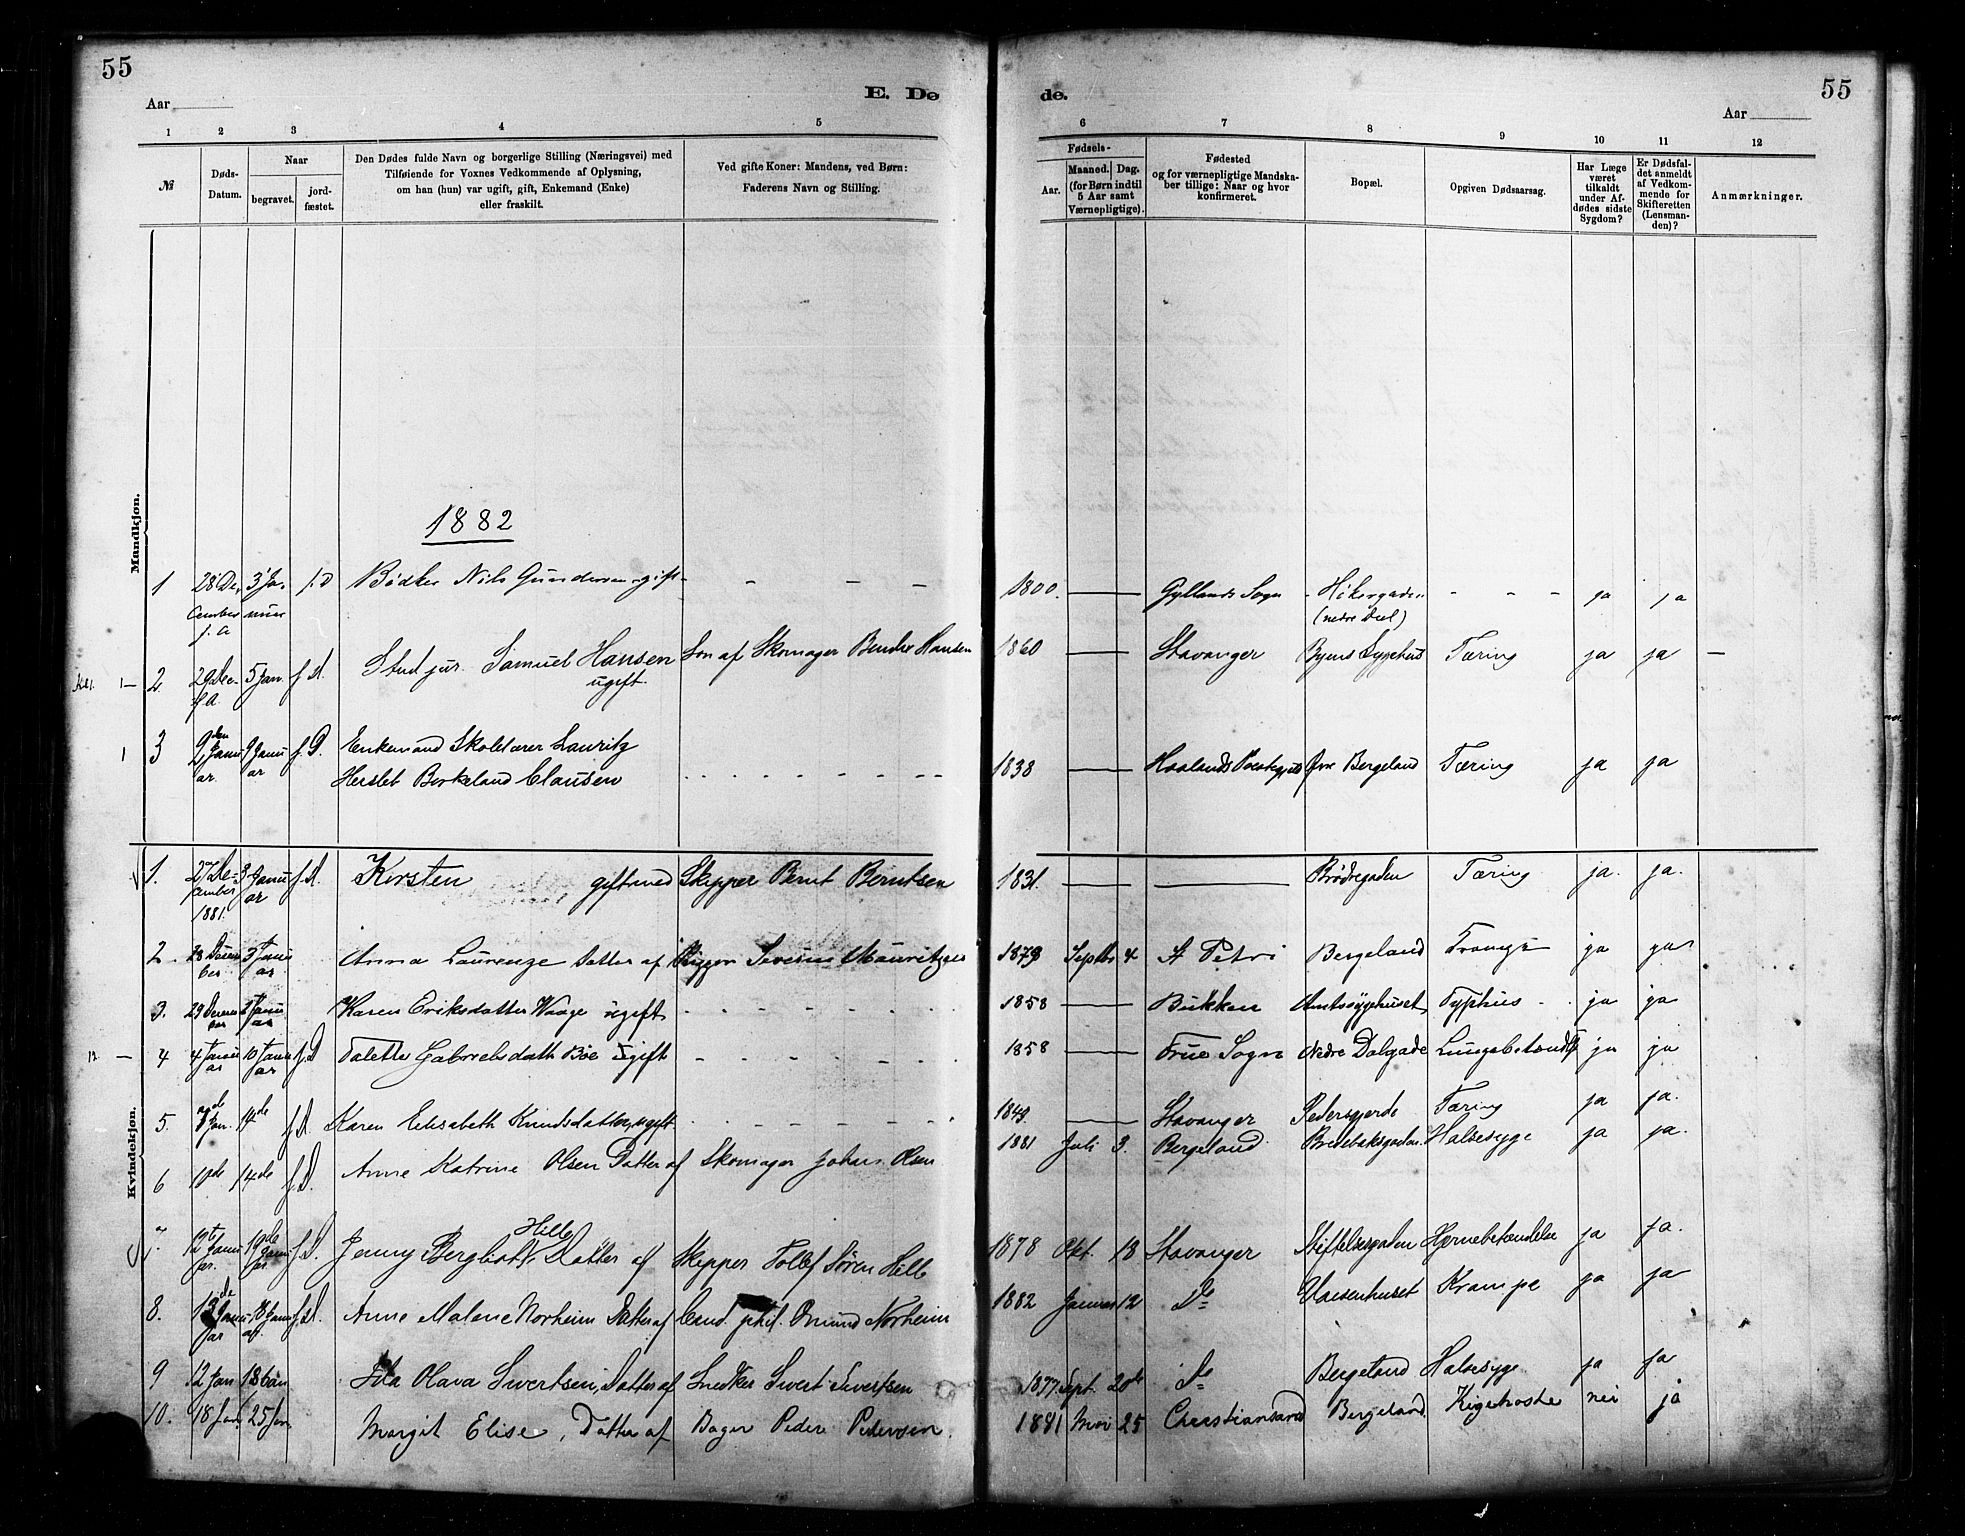 55
55
E. Dø
de.
Aar
Aar
1 2 3 4 5 6 7 8 9 10 11 12
№
Døds-
Datum.
Naar
begravet.
jord-
fæstet.
Den Dødes fulde Navn og borgerlige Stilling (Næringsvei) med
Tilføiende for Voxnes Vedkommende af Oplysning,
om han (hun) var ugift, gift, Enkemand (Enke)
eller fraskilt.
Ved gifte Koner: Mandens, ved Børn:
Faderens Navn og Stilling.
Fødsels-
Aar.
Maaned. Dag.
(for Børn indtil
5 Aar samt
Værnepligtige).
Fødested
og for værnepligtige Mandska-
ber tillige: Naar og hvor
konfirmeret.
Bopæl.
Opgiven Dødsaarsag.
Har Læge
været
tilkaldt
under Af-
dødes sidste
Sygdom?
Er Dødsfal-
det anmeldt
af Vedkom-
mende for
Skifteretten
(Lensman-
den)?
Anmærkninger.
Mandkjøn.
1882
1 28 De- 3 Ja- f. D Bødker Nils Gundersen gift - - - 1800. Gyllands Sogn Hökergaden - - - ja ja
cember nuar (nedre Deel)
f. A
2 29 Dec- 5 Jan. f. D. Stud jur. Samuel Hansen Søn af Skomager Hansen 1860 Stavanger Byens Sygehus Tæring ja ja -
f. A. ugift.
3 2den Janu 9 Janu f. D. Enkemand Skolelærer Lauritz
ar. ar Hersleb Birkeland Clausen 1838 Haalands Øvre Bergeland Tæring ja ja
Kvindekjøn.
1. 27 De- 3 Janu f. D. Kirsten gift med Skipper Bernt Berntsen 1831. Brødregaden Tæring ja. ja.
cember ar
1881.
2. 28 Decem 3 Janu Anna Laurenze Datter af Rigger Severin Mauritzen 1879 Septbr 4 St Petri Bergeland ja ja
ber ar.
3. 29 Decem Janu Karen Eriksdatter Waage ugift 1858 Bukken Amtssygehuset Typhus ja ja
ber ar
12 - 4 4 Janu 10 Janu f. D Talette Gabrielsdatt Bøe Ugift 1858 Frue Sogn Nedre Dalgade Lungebetændelse ja ja
ar ar
5. Jan. 14de f. D. Karen Elisabeth Knudsdatter, ugift 1849. Stavanger Pedersgjerde Tæring ja ja.
6 10de 14de f. D. Anne Katrine Olsen Datter af Skomager Johan Olsen 1881 Juli 3. Bergeland Bredebaksgaden Halsesyge ja ja.
Hille
7. 12te Janu 19de Janu f. D. Jenny Bergliot, Datter af Skipper Tollef Søren Hille 1878 Okt. 18 Stavanger Stiftelsesgaden Hjernebetændelse ja ja.
ar. ar
8. 13de Janu 18 Janu f. D. Anne Malene Norheim Datter af Cand. phil. Omund Norheim 1882 Januar 12 Do Vaisenhuset Krampe ja ja
ar ar.
9 12 Jan 18 Jan Ida Olava Sivertsen, Datter af Snedker Sivert Sivertsen 1877 Sept. 20de Do Bergeland Halsesyge ja ja
10. 18 Jan. 25 Jan. Margit Elise, Datter af Bager Peder Pedersen. 1881 Mai 25 Christiansand Bergeland Kighoste nei ja